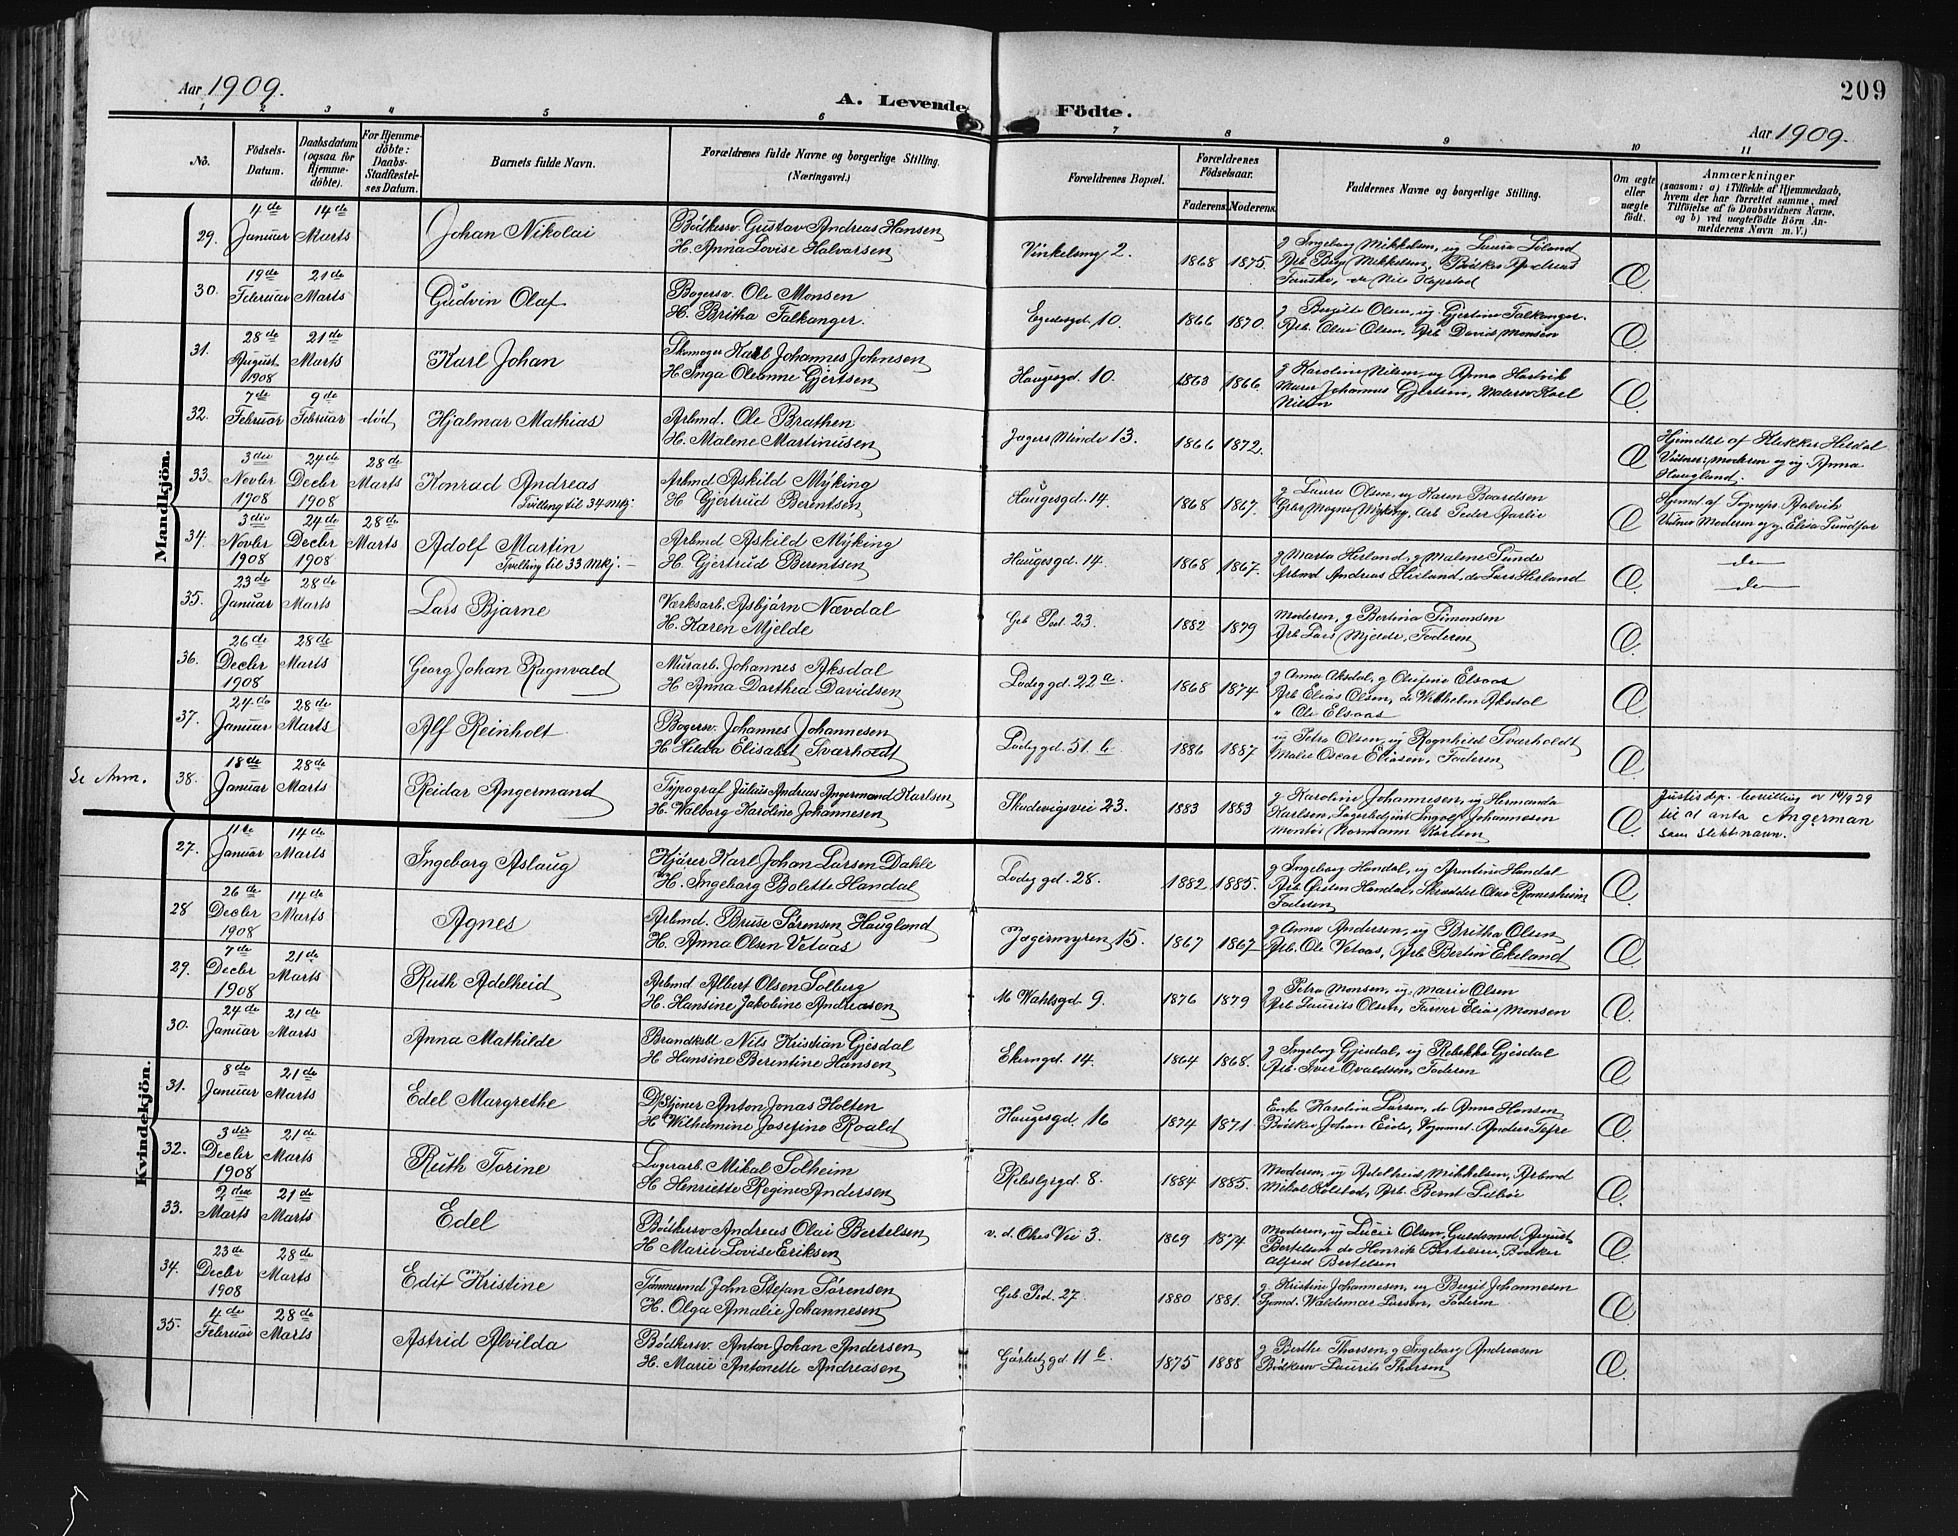 209
Aar 1909.
A. Levende Födte.
Aar 1909.
1 2 3 4 5 6 7 8 9 10 11
No.
Födsels-Datum.
Daabsdatum (ogsaa for Hjemmedöbte).
For Hjemmedöbte: Daabs-Stadfæstelses Datum.
Barnets fulde Navn.
Forældrenes fulde Navne og borgerlige Stilling.
(Næringsvei.)
Forældrenes Bopæl.
Forældrenes Födselsaar.
Faderens. Moderens.
Faddernes Navne og borgerlige Stilling.
Om ægte eller uægte födt.
Anmærkninger
(saasom: a) i Tilfælde af Hjemmedaab, hvem der har forrettet samme, med Tilföielse af to Daabsvidners Navne, og b) ved uægtefödte Börn Anmelderens Navn m. V.)
Mandkjön.
29. 4de Januar 14de Marts Johan Nikolai
Bödkersv. Gustav Andreas Hansen
H. Anna Lovise Halvarsen
Vinkelsmg 2. 1868 1875.
g Ingeborg Mikkelsen, ug Laura
Mikkelsen, Bödker Andreas
Æ.
30. 19de Februar 21de Marts Gudvin Olaf
Bogersv. Ole Monsen
H. Britha Falkanger.
10. 1866 1870.
g Birgitte Olsen, ug Gjertine Falkanger.
Arb. Olai Olsen, Arb David Monsen
Æ.
31. 28de August 1908 21de Marts Karl Johan
Skomager Karl Johannes Johnsen
H. Inga Oleanne Gjertsen
Haugesgd. 10. 1863 1866.
g Karoline Nilsen, ug Anna
Murer Johannes Gjertsen, Malersv Karl
Nilsen
Æ.
32. 7de Februar 9de Februar död Hjalmar Mathias
Arbmd. Ole Brathen
H. Malene Martinusen
Jægers Minde 13. 1866 1872.
Æ
Hjemdbt af Klokker
Vidner: Moderen og ug. Anna
Haugland.
33. 3die Novbr 1908 24de Decbr 1908 28de Marts Konrad Andreas
Tvilling til 34 mkj.
Arbmd Askild Myking
H. Gjertrud Berentsen
Haugesgd. 14. 1868 1867.
g Laura Olsen, ug Karen Baardsen
Gbr Mogne Myking, Arb Peder
Æ
Hjemd af Sognepr.
Vidner Moderen og g. Elisa
34. 3die Novbr 1908 24de Decbr 1908 28de Marts Adolf Martin
Tvilling til 33 mkj.
Arbmd Askild Myking
H. Gjertrud Berentsen
Haugesgd. 14. 1868 1867.
g Marta Herland, g Malene Tunde
Arbmd Andreas do Lars Herland
Æ
do
do
35. 23de Januar 28de Marts Lars Bjarne
Værksarb. Asbjörn Nævdal
H. Karen Mjelde
23. 1882 1879
Moderen, g Bertina Simonsen
Arb Lars Mjelde, Faderen
Æ.
36. 26de Decbr 1908 28de Marts Georg Johan Ragnvald
Murarb. Johannes Aksdal
H Anna Dorthea Davidsen
Ladeggd. 22 a. 1868 1874
g Anna Aksdal, g Olufine Elsaas
Arb Elias Olsen, do Wilhelm Aksdal
" Ole Elsaas
Æ
37. 24de Januar 28de Marts Alf Reinholt
Bogersv. Johannes Johannesen
H Hilda Elisabet Sværholdt
Ladeggd. 51. b. 1886 1887
ug Petra Olsen, ug Ragnhild Sværholdt
Maler Oscar Eliasen, Faderen
Æ
Se Anm.
38. 18de Januar 28de Marts Reidar Angermand
Typograf Julius Andreas Angermand Karlsen
H. Walborg Karoline Johannesen
Skudevigsvei 23. 1883 1883
g Karoline Johannesen, ug Hermanda
Karlsen, Lagerbetjent Ingolf Johannesen
Montör Normann Karlsen
Æ.
Justis dep. bevilling av 14/9 29
til at anta Angerman
som slektsnavn.
Kvindekjön.
27. 11te Januar 14de Marts Ingeborg Aslaug
Kjörer Karl Johan Larsen Dahle
H. Ingeborg Bolette Handal
Ladeggd. 28. 1882 1885.
g Ingeborg Handal, ug Arntine Handal
Arb. Öisten Handal, Skrædder Olav
Faderen
Æ
28 26de Decbr 1908 14de Marts Agnes
Arbmd. Bruse Sörensen Haugland
H. Anna Olsen Vetaas
Jægermyren 15. 1867 1867
g Anna Andersen, ug Britha Olsen
Arb. Ole Vetaas, Arb Bertin Ekeland
Æ.
29. 7de Decbr 1908 21de Marts Ruth Adelheid
Arbmd Albert Olsen Solberg
H. Hansine Jakobine Andreasen
M Wahlsgd 9. 1876 1879
g Petra Monsen, ug. Marie Olsen
Arb Laurits Olsen, Farver Elias Monsen
Æ.
30. 24de Januar 21de Marts Anna Mathilde
Nils Kristian Gjesdal
H Hansine Berentine Hansen
Ekrengd. 14. 1864 1868.
g Ingeborg Gjesdal, ug Rebekka Gjesdal
Arb. Iver Ovaldsen, Faderen
Æ
31. 8de Januar 21de Marts Edel Margrethe
Anton Jonas Holten
H Wilhelmine Josefine Roald
Haugesgd 16 1874 1871
Enke Karoline Larsen, do Anna Hansen
Bödker Johan Eide, Anders
Æ.
32. 3die Decbr 1908 21de Marts Ruth Torine
Lagerarb. Mikal Solheim
H Henriette Regine Andersen
8. 1884 1885.
Moderen, ug Adelheid Mikkelsen, Arbmd
Mikal Kolstad, Arb. Bernt
Æ.
33. 2den Marts 21de Marts Edel
Bödkersv Andreas Olai Bertelsen
H Marie Lovise Eriksen
v. d. Ohes Vei 3. 1869 1874
Moderen, ug Lucie Olsen, Guldsmed August
Bertelsen do Henrik Bertelsen, Bödker
Alfred Bertelsen
Æ
34. 23de Decbr 1908 28de Marts Edit Kristine
Tömmermd John Stefan Sörensen
H. Olga Amalie Johannesen
27. 1880 1881.
g Kristine Johannesen, ug Bergit Johannesen
Waldemar Larsen, Faderen
Æ
35. 4de Februar 28de Marts Astrid Alvilda
Bödkersv. Anton Johan Andersen
H. Marie Antonette Andreasen
11 b. 1875 1888
g Berthe Thorsen, g Ingeborg Andreasen
Bödkersv Laurits Thorsen
Æ.